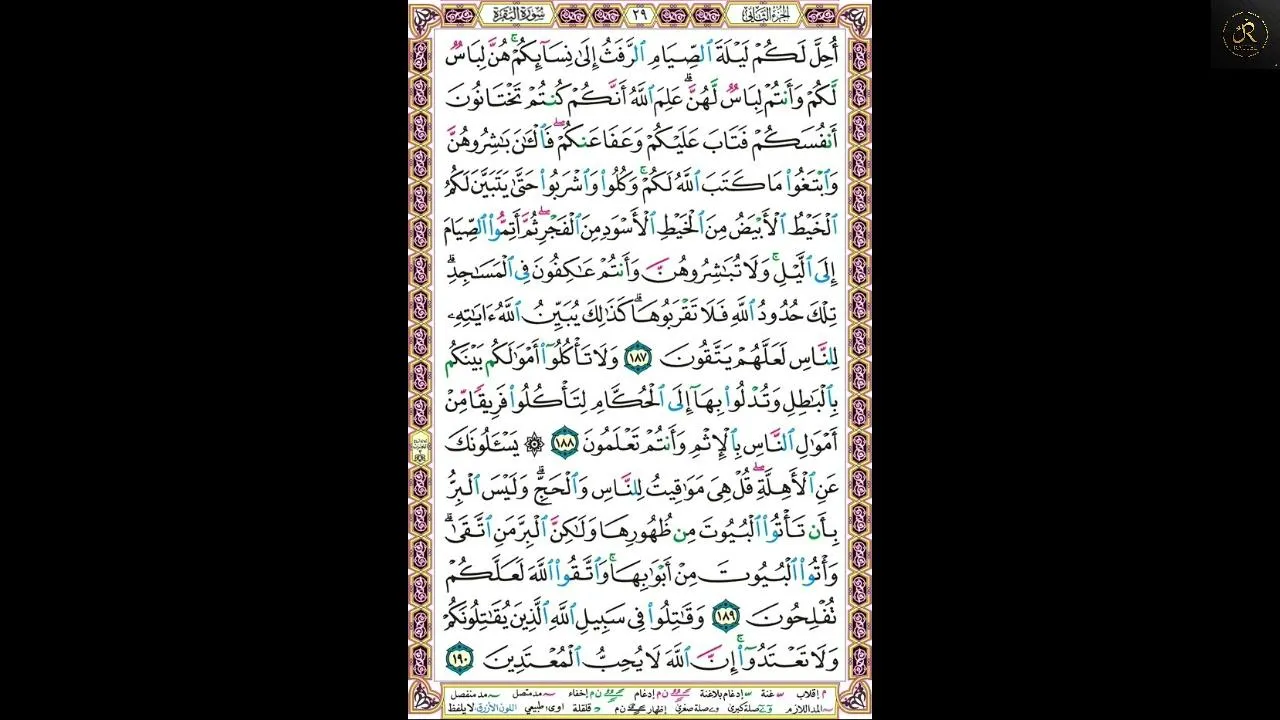 الجزء الثاني ٢٩ سورة البقرة
أُحِلَّ لَكُمْ لَيْلَةَ ٱلصِّيَامِ ٱلرَّفَثُ إِلَىٰ نِسَآئِكُمْ ۚ هُنَّ لِبَاسٌ
لَّكُمْ وَأَنتُمْ لِبَاسٌ لَّهُنَّ ۗ عَلِمَ ٱللَّهُ أَنَّكُمْ كُنتُمْ تَخْتَانُونَ
أَنفُسَكُمْ فَتَابَ عَلَيْكُمْ وَعَفَا عَنكُمْ ۖ فَٱلْـَٰٔنَ بَٰشِرُوهُنَّ
وَٱبْتَغُوا۟ مَا كَتَبَ ٱللَّهُ لَكُمْ ۚ وَكُلُوا۟ وَٱشْرَبُوا۟ حَتَّىٰ يَتَبَيَّنَ لَكُمُ
ٱلْخَيْطُ ٱلْأَبْيَضُ مِنَ ٱلْخَيْطِ ٱلْأَسْوَدِ مِنَ ٱلْفَجْرِ ۖ ثُمَّ أَتِمُّوا۟ ٱلصِّيَامَ
إِلَى ٱلَّيْلِ ۚ وَلَا تُبَٰشِرُوهُنَّ وَأَنتُمْ عَٰكِفُونَ فِى ٱلْمَسَٰجِدِ ۗ
تِلْكَ حُدُودُ ٱللَّهِ فَلَا تَقْرَبُوهَا ۗ كَذَٰلِكَ يُبَيِّنُ ٱللَّهُ ءَايَٰتِهِۦ
لِلنَّاسِ لَعَلَّهُمْ يَتَّقُونَ ١٨٧ وَلَا تَأْكُلُوٓا۟ أَمْوَٰلَكُم بَيْنَكُم
بِٱلْبَٰطِلِ وَتُدْلُوا۟ بِهَآ إِلَى ٱلْحُكَّامِ لِتَأْكُلُوا۟ فَرِيقًا مِّنْ
أَمْوَٰلِ ٱلنَّاسِ بِٱلْإِثْمِ وَأَنتُمْ تَعْلَمُونَ ١٨٨ ۞ يَسْـَٔلُونَكَ
عَنِ ٱلْأَهِلَّةِ ۖ قُلْ هِىَ مَوَٰقِيتُ لِلنَّاسِ وَٱلْحَجِّ ۗ وَلَيْسَ ٱلْبِرُّ
بِأَن تَأْتُوا۟ ٱلْبُيُوتَ مِن ظُهُورِهَا وَلَٰكِنَّ ٱلْبِرَّ مَنِ ٱتَّقَىٰ ۗ
وَأْتُوا۟ ٱلْبُيُوتَ مِنْ أَبْوَٰبِهَا ۚ وَٱتَّقُوا۟ ٱللَّهَ لَعَلَّكُمْ
تُفْلِحُونَ ١٨٩ وَقَٰتِلُوا۟ فِى سَبِيلِ ٱللَّهِ ٱلَّذِينَ يُقَٰتِلُونَكُمْ
وَلَا تَعْتَدُوٓا۟ ۚ إِنَّ ٱللَّهَ لَا يُحِبُّ ٱلْمُعْتَدِينَ ١٩٠
م إقلاب غنة إدغام بلاغنة ن م إدغام ن م إخفاء مد متصل مد منفصل
المد اللازم صلة كبرى صلة صغرى إظهار ن م قلقلة اوى طبيعي اللون الأزرق لا يلفظ